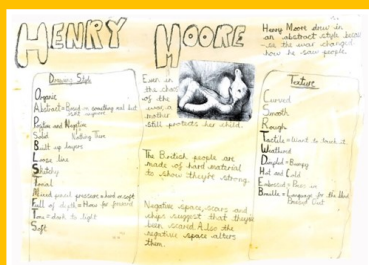 HENRY MOORE
Henry Moore drew in
an abstract style becau
-se the war changed
how he saw people.
Drawing Style
Organic
Abstract = Based on something real but
Positive and Negative
Solid Nothing There
Built up layers
Loose line
Sketchy
Tonal
Mixed paint pressure = hard or soft
Full of depth =
Tone = dark to light
Soft
Even in
the chaos
of the
war a
mother
still protects her child.
The British people are
made of hard material
to show they're strong.
Negative space, scars and
chips suggest that they've
been scared. Also the
negative space alters
them.
Texture
Curved
Smooth
Rough
Tactile = Want to touch it
Weathered
Dimpled = Bumpy
Hot and Cold
Embossed =
Braille = Language for the blind